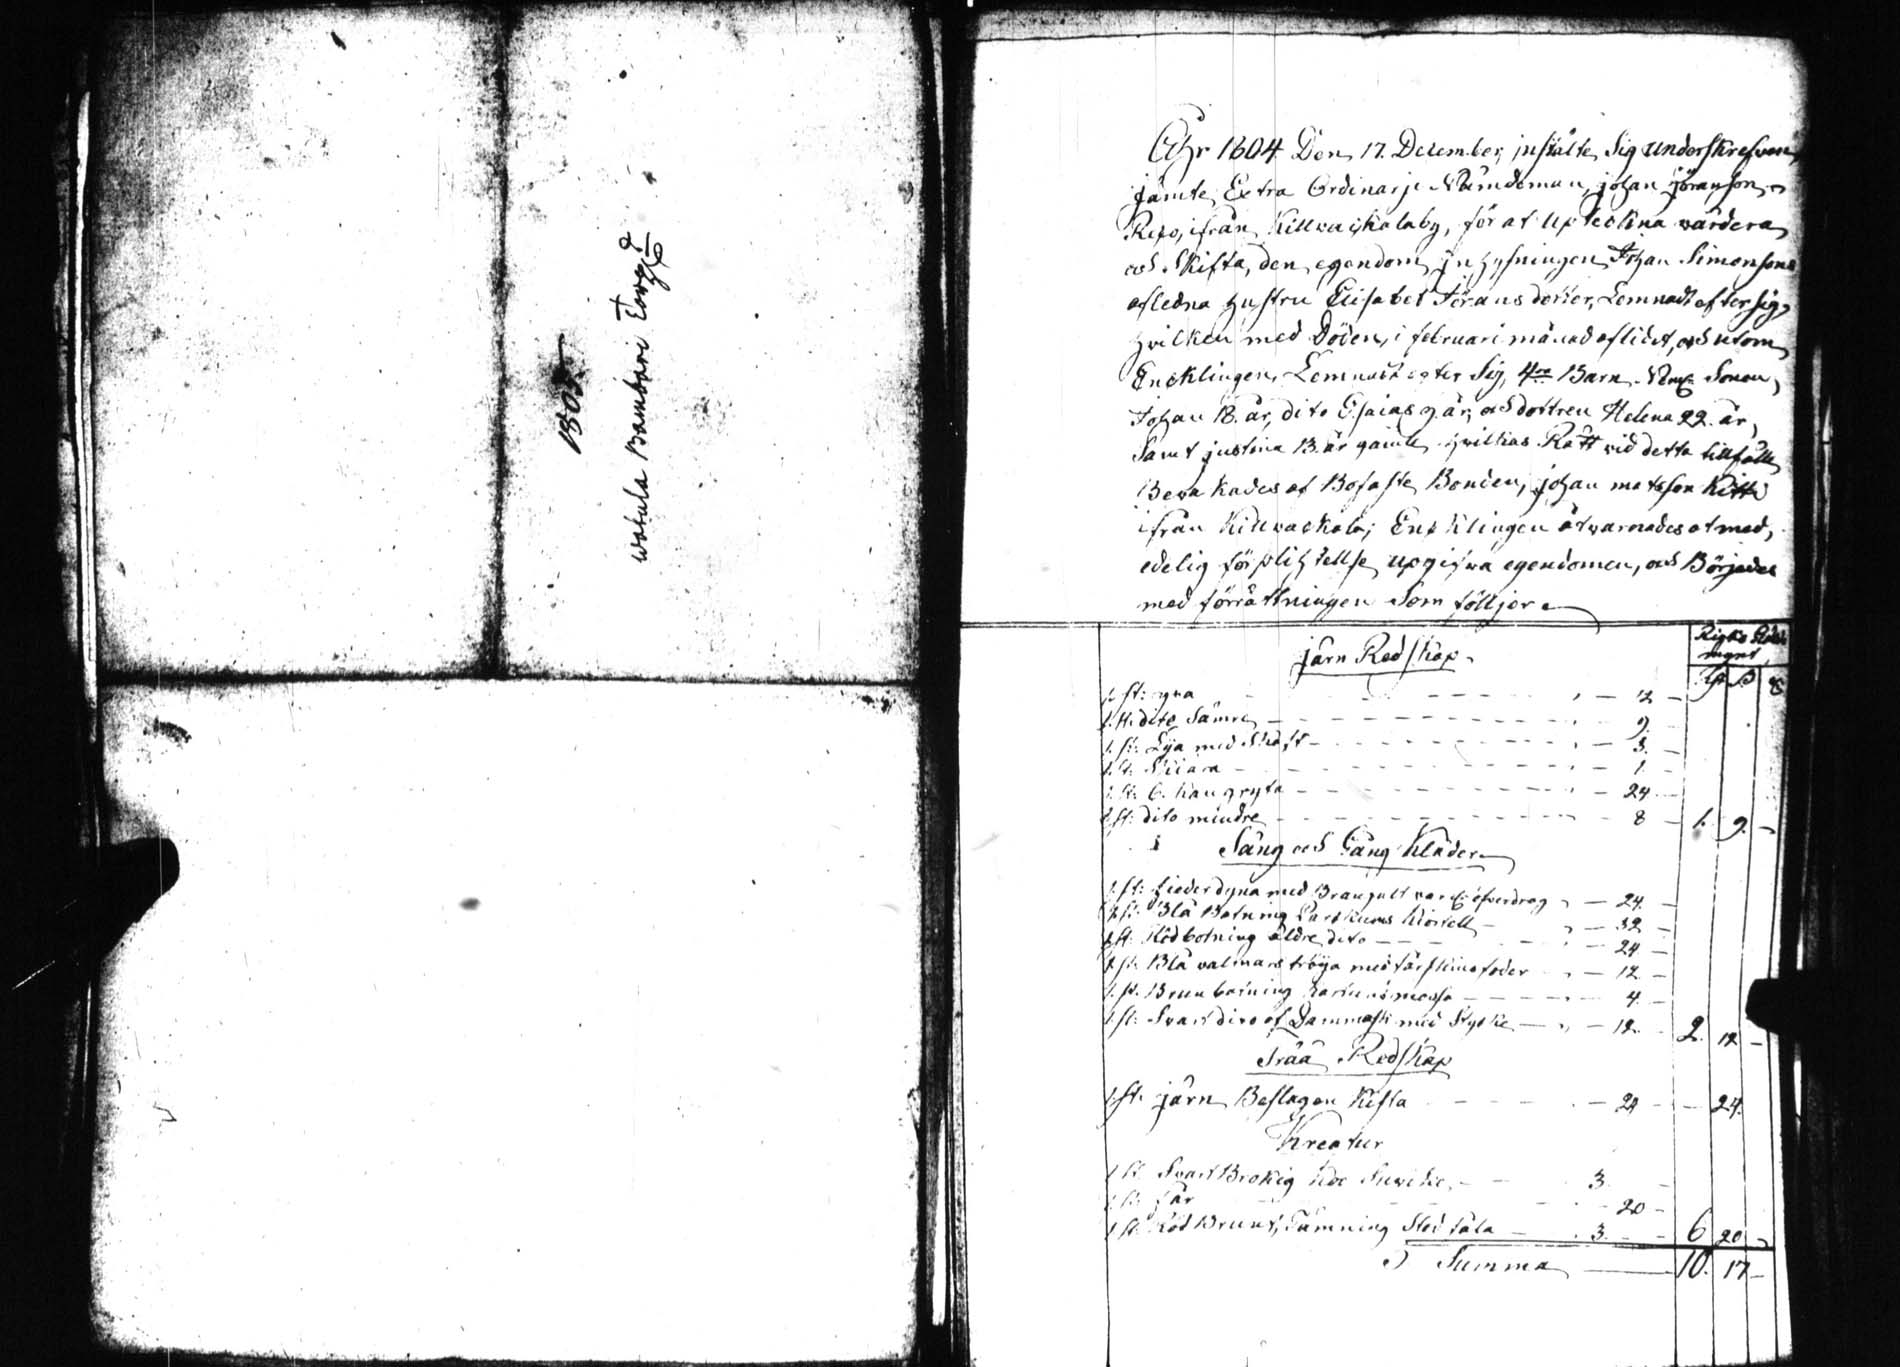 1805
Watula Bambari Torp
Åhr 1804 Den 17. December, instälte Sig underskrefven,
jämte Extra Ordinarje Nämdeman, johan Jöranson
Repo, ifrån Killvackalaby, för at upteckna värdera
och Skifta, den egendom jnhysningen Johan Simonsons
afledna hustru Elisabet Jöransdotter, Lemnadt efter sig,
hvilken med Döden, i februari månad aflidet, och utom
Encklingen, Lemnadt efter Sig, 4ra Barn. Neml. Sonen,
Johan 18. år, dito Esaias 9 år, och dottren Helena 22. år,
Samt justina 13. år gamla, hvilkas Rätt vid detta tillfälle
Bevakades af Bofaste Bonden, johan matsson Kitti
ifrån Killvackala; Encklingen åtvarnades at med,
edelig förplichtellse, upgifva egendomen, och Börjades
med förrättningen Som fölljer
järn Redskap Rigts
1. st: yxa 2
1. st: dito Sämre 9
1. st: Lija med Skaft 3.
1. st: Skiära 1.
1. st: 6. kan gryta 24
1. st: dito mindre 8 1. 9.
Säng och Gång Kläder
1. st: fieder dyna med öfverdrag 24
1. st: Blå Botning kiortell 32
1. st: Röd botning äldre dito 24
1. st: Blå valmars tröija med fårskins foder 12
1. st: Brun botning mössa 4
1. st: Svart dito af Dammask med Stycke 12 2. 12
Trää Redskap
1. st: järn Beslagen Kista 24 24.
Kreatur
1. st: Svart Brokig 3.
1. st: får 20
1. st: Röd Brunt, Stod fåla 3. 6 20
Summa 10. 17